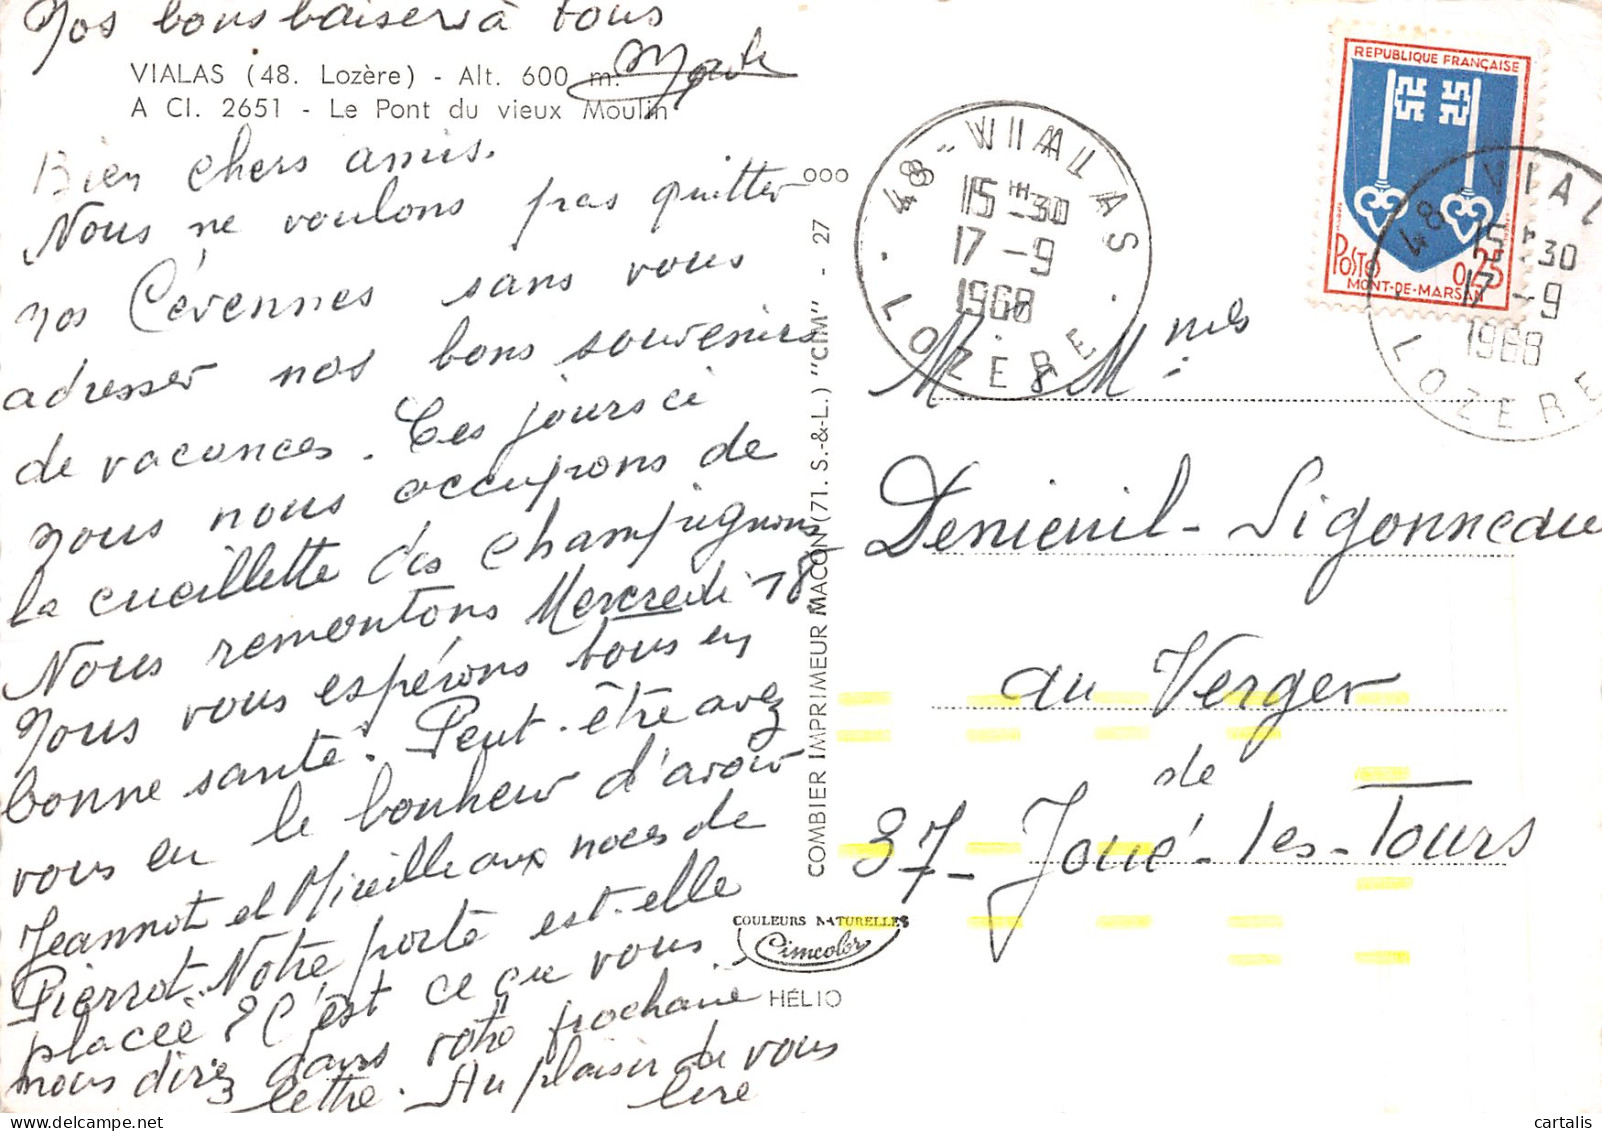 Nos bons baisers à tous
VIALAS (48. Lozère) - Alt. 600 m.
A CI. 2651 - Le Pont du vieux Moulin
Bien chers amis.
Nous ne voulons pas quitter
nos Cévennes sans vous
adresser nos bons souvenirs
de vacances. Ces jours ci
nous nous occupons de
la cueillette des champignons
Nous remontons Mercredi 18
Nous vous espérons tous en
bonne santé. Peut-être avez
vous eu le bonheur d'avoir
Jeannot et Mireille aux noces de
Pierrot. Notre porte est-elle
placée ? C'est ce que vous
nous direz dans votre prochaine
lettre. Au plaisir de vous
lire
COMBIER IMPRIMEUR MACON (71. S.-&-L.) "CIM" - 27 000
COULEURS NATURELLES
Cimcolor
HÉLIO
48 - VIALAS
15 H 30
17 - 9
1968
LOZERE
REPUBLIQUE FRANÇAISE
POSTES 0,25
MONT-DE-MARSAN
48 VIAL
15 H 30
17 - 9
1968
LOZERE
M & Mmes
Denieuil - Sigonneau
au Verger
de
37 - Joué-les-Tours
cartalis.com